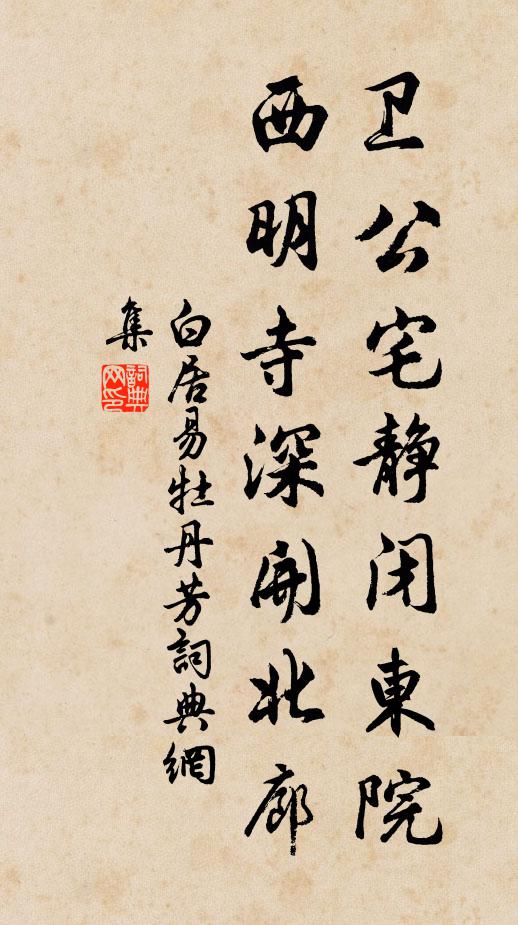 卫公宅静闭东院
西明寺深開北廊
白居易牡丹芳詞典網
集
詞典網印